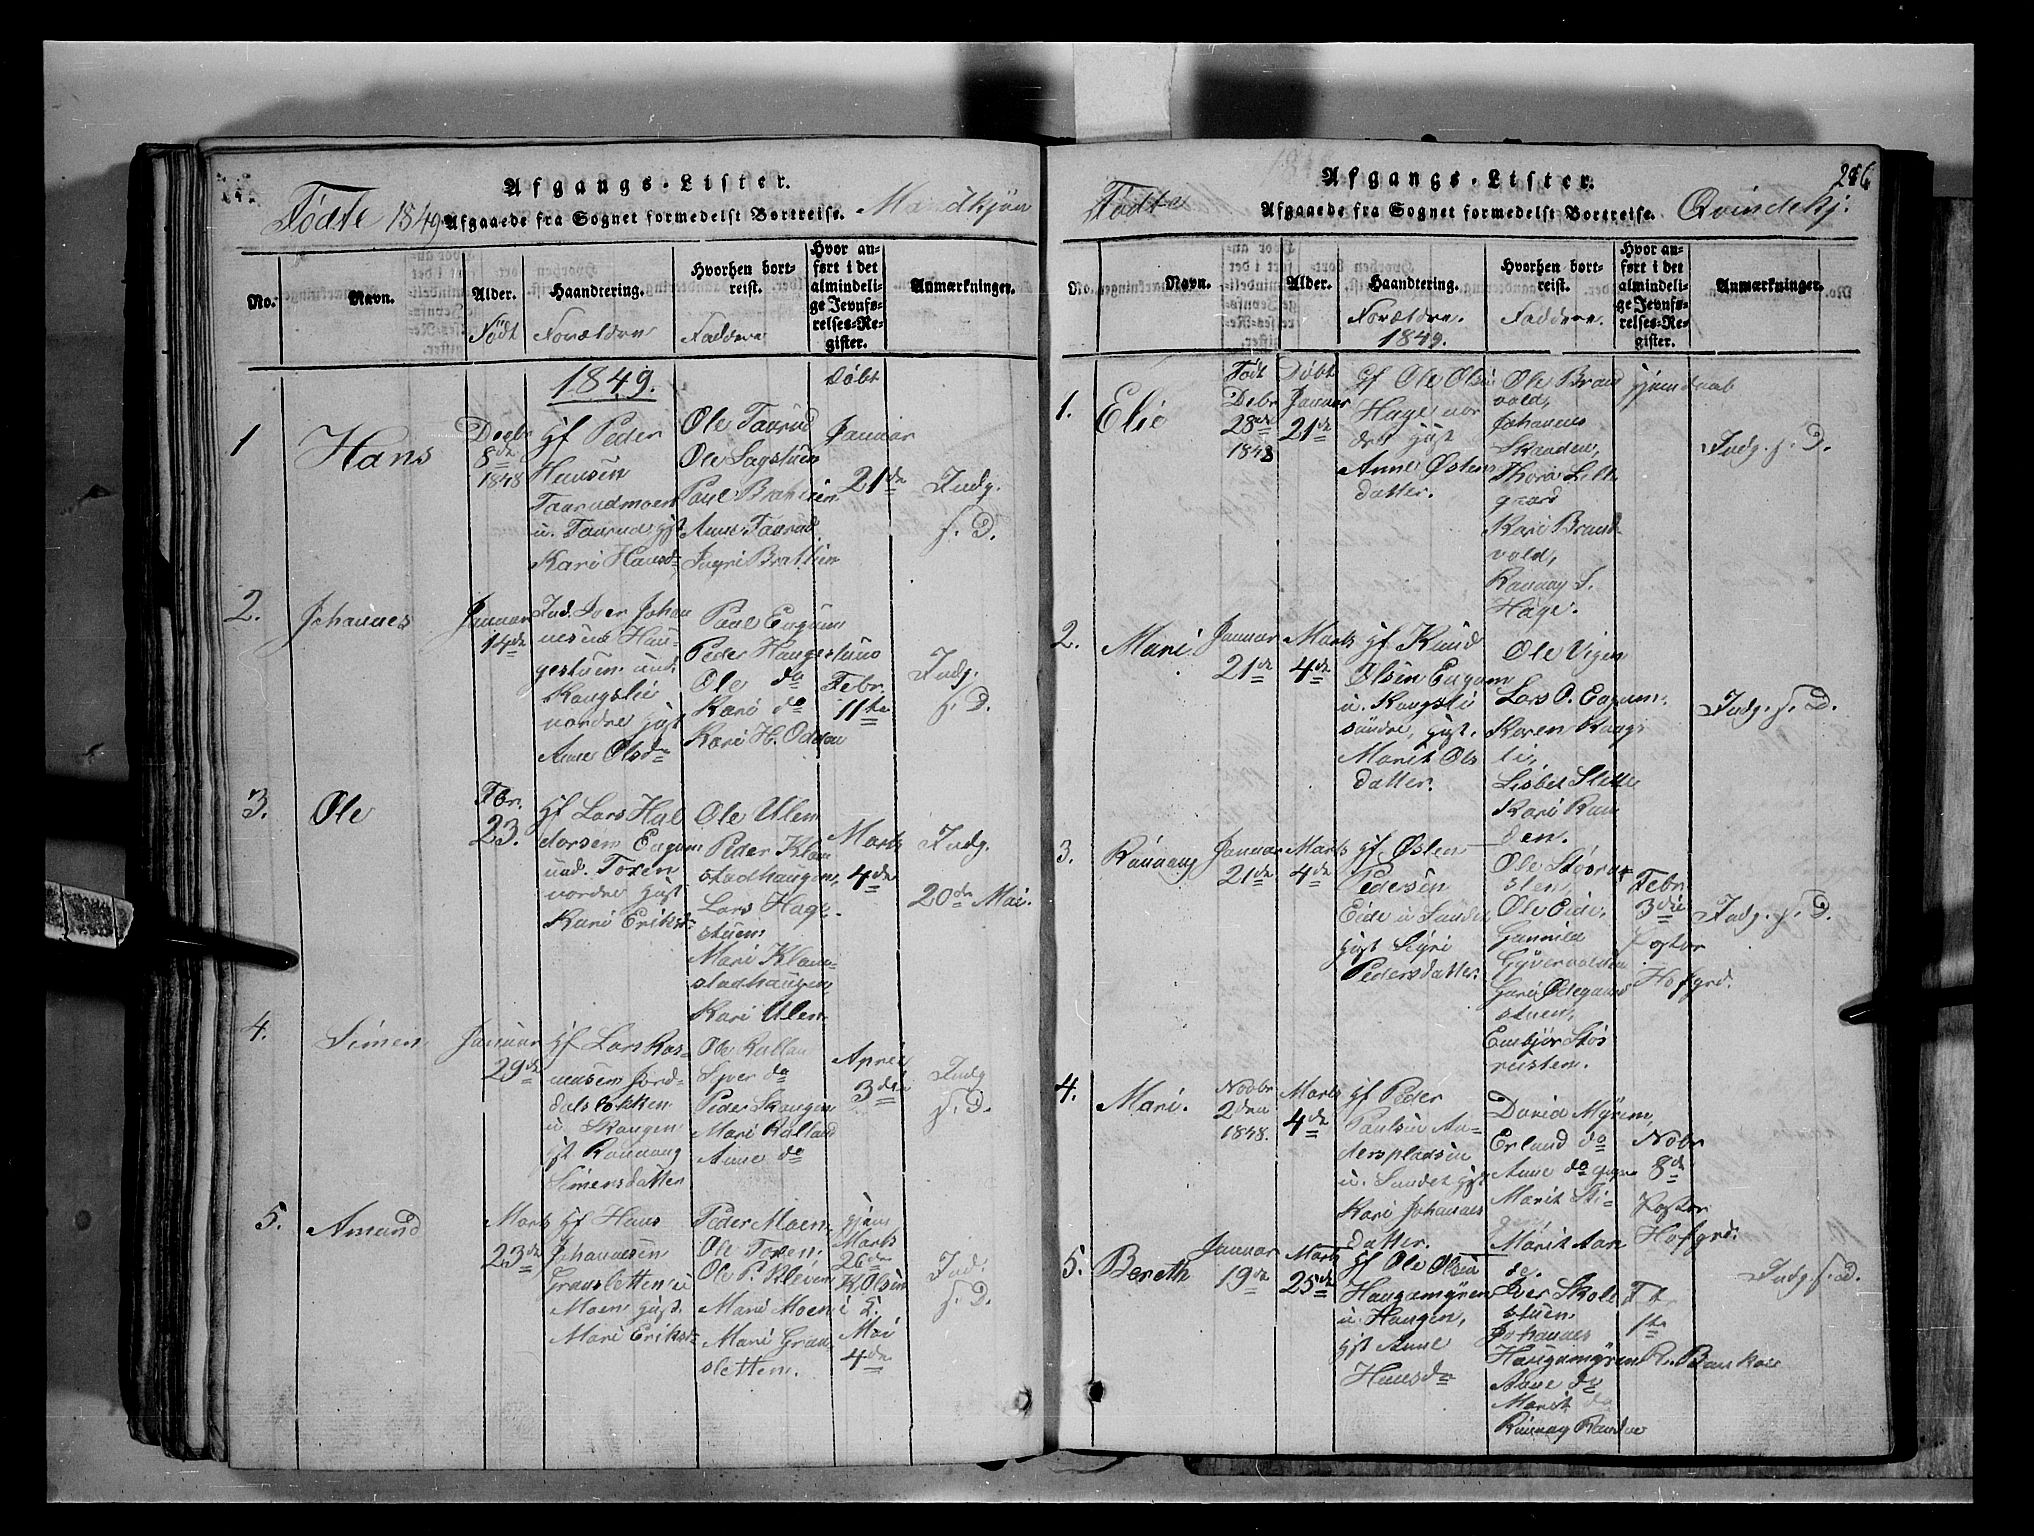 Afgangs-Lister.
Födte 1849 Afgaaede fra Sognet formedelst Bortreise. Mandkjön
No.
Navn.
Alder.
Födt
Haandtering.
Forældre
Hvorhen bort-
reist.
Faddere
Hvor an-
ført i det
almindeli-
ge Jevnfø-
relses-Re-
gister.
Anmærkninger.
1849.
Döbt
1
Hans
Decbr
8de
1848
gf Peder
Hansen
Taarudmoen
u. Taarud gift
Kari Hansd
Ole Taarud
Ole Sagstuen
Paul Brattlien
Anne Taarud
Ingri Brattlien
Januar
21de
Indg.
f. D.
2.
Johannes
Januar
14de
Ind. Iver Johan
nesen Hau
gestuen und.
Kongslie
nordre gift
Anne Olsd
Paul Engum
Peder Haugestuen
Ole do
Kari do
Kari H. Odden
Febr.
11te
Indg.
f. D.
3.
Ole
Fbr.
23.
gf Lars Hal
dorsen Engum
und. Toxen
nordre gift
Kari Eriksd
Ole Ulen
Peder Klom
stadhaugen,
Lars Hage
stuen
Mari Klom
stadhaugen,
Kari Ulen
Marts
4de
Indg.
20de Mai.
4.
Simen
Januar
29de
gf Lars Ras-
musen Jord-
dalsløkken
u. Skougen
gft Rønnaug
Simensdatter
Ole Kolland
Syver do
Peder Skougen
Mari Kolland
Anne do
April
3die
Indg
f. D.
5.
Amund
Marts
23de
gf Hans
Johannesen
Gransletten u
Moen gift
Mari Eriksd
Peder Moen
Ole Toxen.
Ole P. Kleven
Mari Moen
Mari Gran
sletten.
hjem
Marts
26de
K Olsen
i K.
Mai
4de
Ind.
f. D.
Afgangs-Lister.
286
Födte
Afgaaede fra Sognet formedelst Bortreise. Qvindekj.
No.
Navn.
Alder.
Haandtering.
Forældre.
1849.
Hvorhen bort-
reist.
Faddere.
Hvor an-
ført i det
almindeli-
ge Jevnfø-
relses-Re-
gister.
Anmærkninger.
Födt
Döbt
1.
Elie
Debr
28de
1848
Januar
21de
gf Ole Olsen
Hage nor
dre gift
Anne Østens
datter.
Ole Brand
vold,
Johannes
Skanden,
Thora Lille
gaard
Kari Brand
vold,
Rønnaug S.
Hage.
hjemdøb
Indg. f. D.
2.
Mari.
Januar
21de
Marts
4de
gf Knud
Olsen Engum
u. Kongslie
søndre, gift.
Marit Ols
datter.
Ole Vigen
Lars O. Engum.
Karen Kongs
lie,
Lisbet Slette
Kari Ran
den.
Indg. f. D.
3.
Rønnaug
Januar
21de
Marts
4de
gf Østen
Pedersen
Eide u Sundet
gift Siri
Pedersdatter.
Ole Størru
sten,
Ole Eide,
Gunnild
Gjyvervolden
Guri Ødegaard
stuen,
Embjør Stør
rusten.
Febr
3die
Pastor
Hofgrd.
Indg. f. D.
4.
Mari.
Novbr
2den
1848.
Marts
4de
gf Peder
Paulsen An-
derspladsen
u. Sundet gift
Kari Johannes
datter.
David Myren,
Erland do
Anne do gyne
Marit Sti-
gen,
Marit Aan
de.
Nobr
8de
Pastor
Hofgrd.
5.
Bereth
Januar
19de
Marts
25de
gf Ole Olsen
Haugamyren
u. Haugen,
gft Anne
Hansda
Iver Skole
stuen
Johannes
Haugamyren
Anne do
Marit do
Rønnag Randen
Fbr
1te
Indg. f. D.